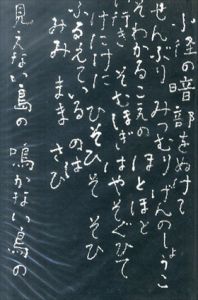 小径の暗部をぬけて
せんぶり みつむり げんのしょうこ
そわかるこえの ほとほと
行き そむほぎはやそぐひて
けにけに ひそひそ そひ
ふるえている のは
みみ まま さび
見えない島の 鳴かない鳥の